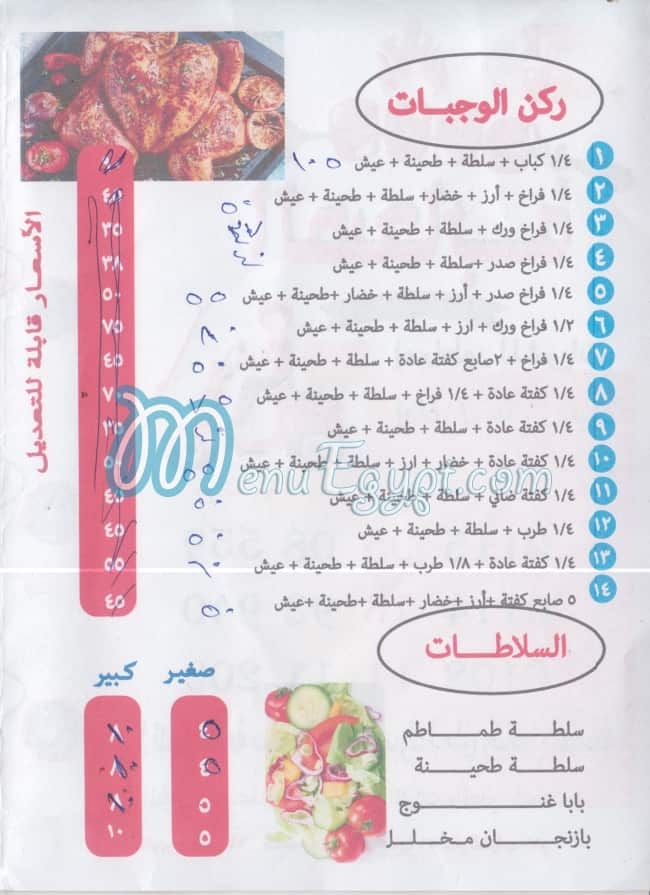 ركن الوجبات
١ ١/٤ كباب + سلطة + طحينة + عيش
٢ ١/٤ فراخ + أرز + خضار+ سلطة + طحينة + عيش ٤٥
٣ ١/٤ فراخ ورك + سلطة + طحينة + عيش ٣٥
٤ ١/٤ فراخ صدر +سلطة + طحينة + عيش ٣٨
٥ ١/٤ فراخ صدر + أرز + سلطة + خضار +طحينة + عيش ٥٠
٦ ١/٢ فراخ ورك + ارز + سلطة + طحينة + عيش ٧٥
٧ ١/٤ فراخ + ٢صابع كفتة عادة + سلطة + طحينة + عيش ٤٥
٨ ١/٤ كفتة عادة + ١/٤ فراخ + سلطة + طحينة + عيش ٧٠
٩ ١/٤ كفتة عادة + سلطة + طحينة + عيش ٣٥
١٠ ١/٤ كفتة عادة + خضار + ارز + سلطة + طحينة + عيش ٥٠
١١ ١/٤ كفتة ضاني + سلطة + طحينة + عيش ٤٥
١٢ ١/٤ طرب + سلطة + طحينة + عيش ٤٥
١٣ ١/٤ كفتة عادة + ١/٨ طرب + سلطة + طحينة + عيش ٥٥
١٤ ٥ صابع كفتة +أرز +خضار +سلطة +طحينة +عيش ٤٥
الأسعار قابلة للتعديل
MenuEgypt.com
السلاطات
صغير كبير
سلطة طماطم
سلطة طحينة
بابا غنوج ٥
بازنجان مخلل ٥ ١٠